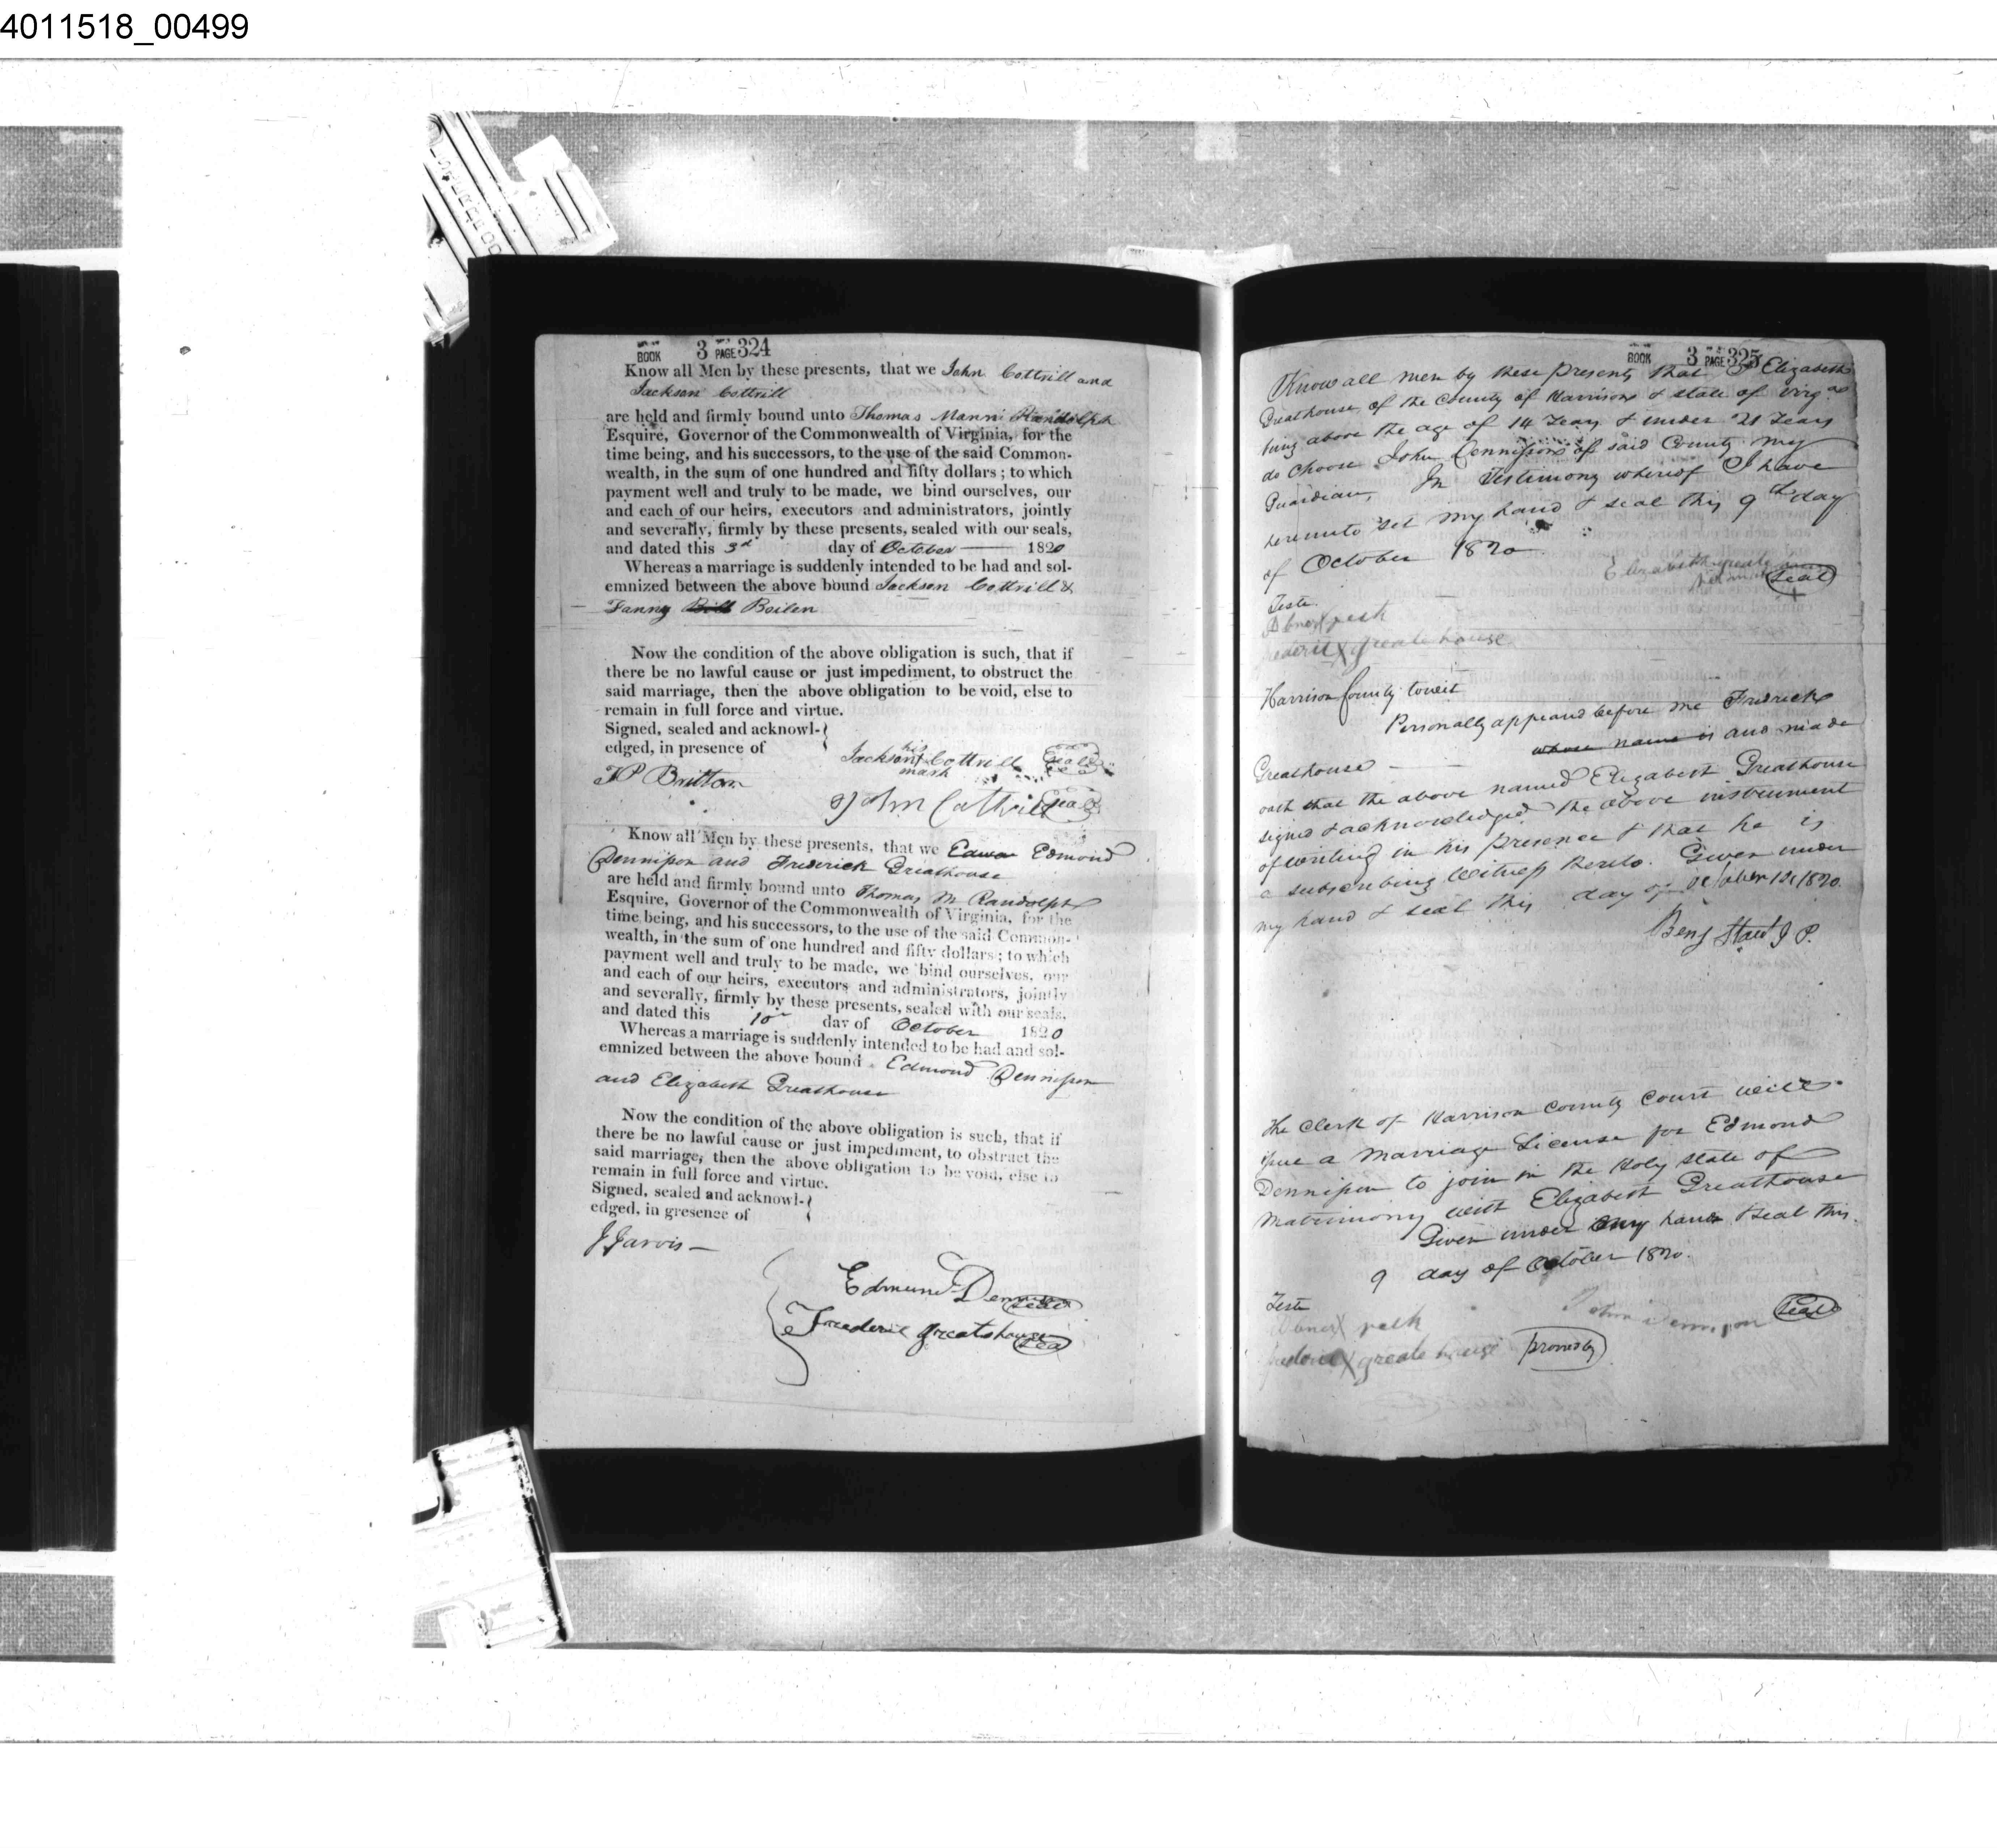 4011518_00499
BOOK 3 PAGE 324
Know all Men by these presents, that we John Cottrill and
Jackson Cottrill
are held and firmly bound unto Thomas Mann Randolph
Esquire, Governor of the Commonwealth of Virginia, for the
time being, and his successors, to the use of the said Common-
wealth, in the sum of one hundred and fifty dollars; to which
payment well and truly to be made, we bind ourselves, our
and each of our heirs, executors and administrators, jointly
and severally, firmly by these presents, sealed with our seals,
and dated this 3d day of October 1820
Whereas a marriage is suddenly intended to be had and sol-
emnized between the above bound Jackson Cottrill &
Fanny Boilen
Now the condition of the above obligation is such, that if
there be no lawful cause or just impediment, to obstruct the
said marriage, then the above obligation to be void, else to
remain in full force and virtue.
Signed, sealed and acknowl-
edged, in presence of
his
Jackson X Cottrill Seal
mark
J P Britton
John Cottrill Seal
Know all Men by these presents, that we Edmond
Dennison and Frederick Greathouse
are held and firmly bound unto Thomas M Randolph
Esquire, Governor of the Commonwealth of Virginia, for the
time being, and his successors, to the use of the said Common-
wealth, in the sum of one hundred and fifty dollars; to which
payment well and truly to be made, we bind ourselves, our
and each of our heirs, executors and administrators, jointly
and severally, firmly by these presents, sealed with our seals,
and dated this 10 day of October 1820
Whereas a marriage is suddenly intended to be had and sol-
emnized between the above bound Edmond Dennison
and Elizabeth Greathouse
Now the condition of the above obligation is such, that if
there be no lawful cause or just impediment, to obstruct the
said marriage, then the above obligation to be void, else to
remain in full force and virtue.
Signed, sealed and acknowl-
edged, in gresence of
J Jarvis
Edmund Dennison Seal
Frederic greatehouse Seal
BOOK 3 PAGE 325
Know all men by these presents that I Elizabeth
Greathouse, of the County of Harrison & state of Virga
being above the age of 14 Years & under 21 Years
do choose John Dennison of said County my
Guardian, In Testimony whereof I have
hereunto set my hand & seal this 9th day
of October 1820
Elizabeth greate
Seal
Teste
Abner X pesk
frederic X greate house
Harrison County towit
Personally appeared before me Fredrick
Greathouse whose name is and made
oath that the above named Elizabeth Greathouse
signed & acknowledged the above instrument
of writing in his presence & that he is
a subscribing Witness thereto. Given under
my hand & seal this day of October 12 1820.
Benj Stout J P.
The Clerk of Harrison County Court will
issue a Marriage License for Edmond
Dennison to join in the Holy State of
Matrimony with Elizabeth Greathouse
Given under my hand & seal this
9 day of October 1820.
Teste
Abner X pesk
John Dennison Seal
frederic X greate house proved by